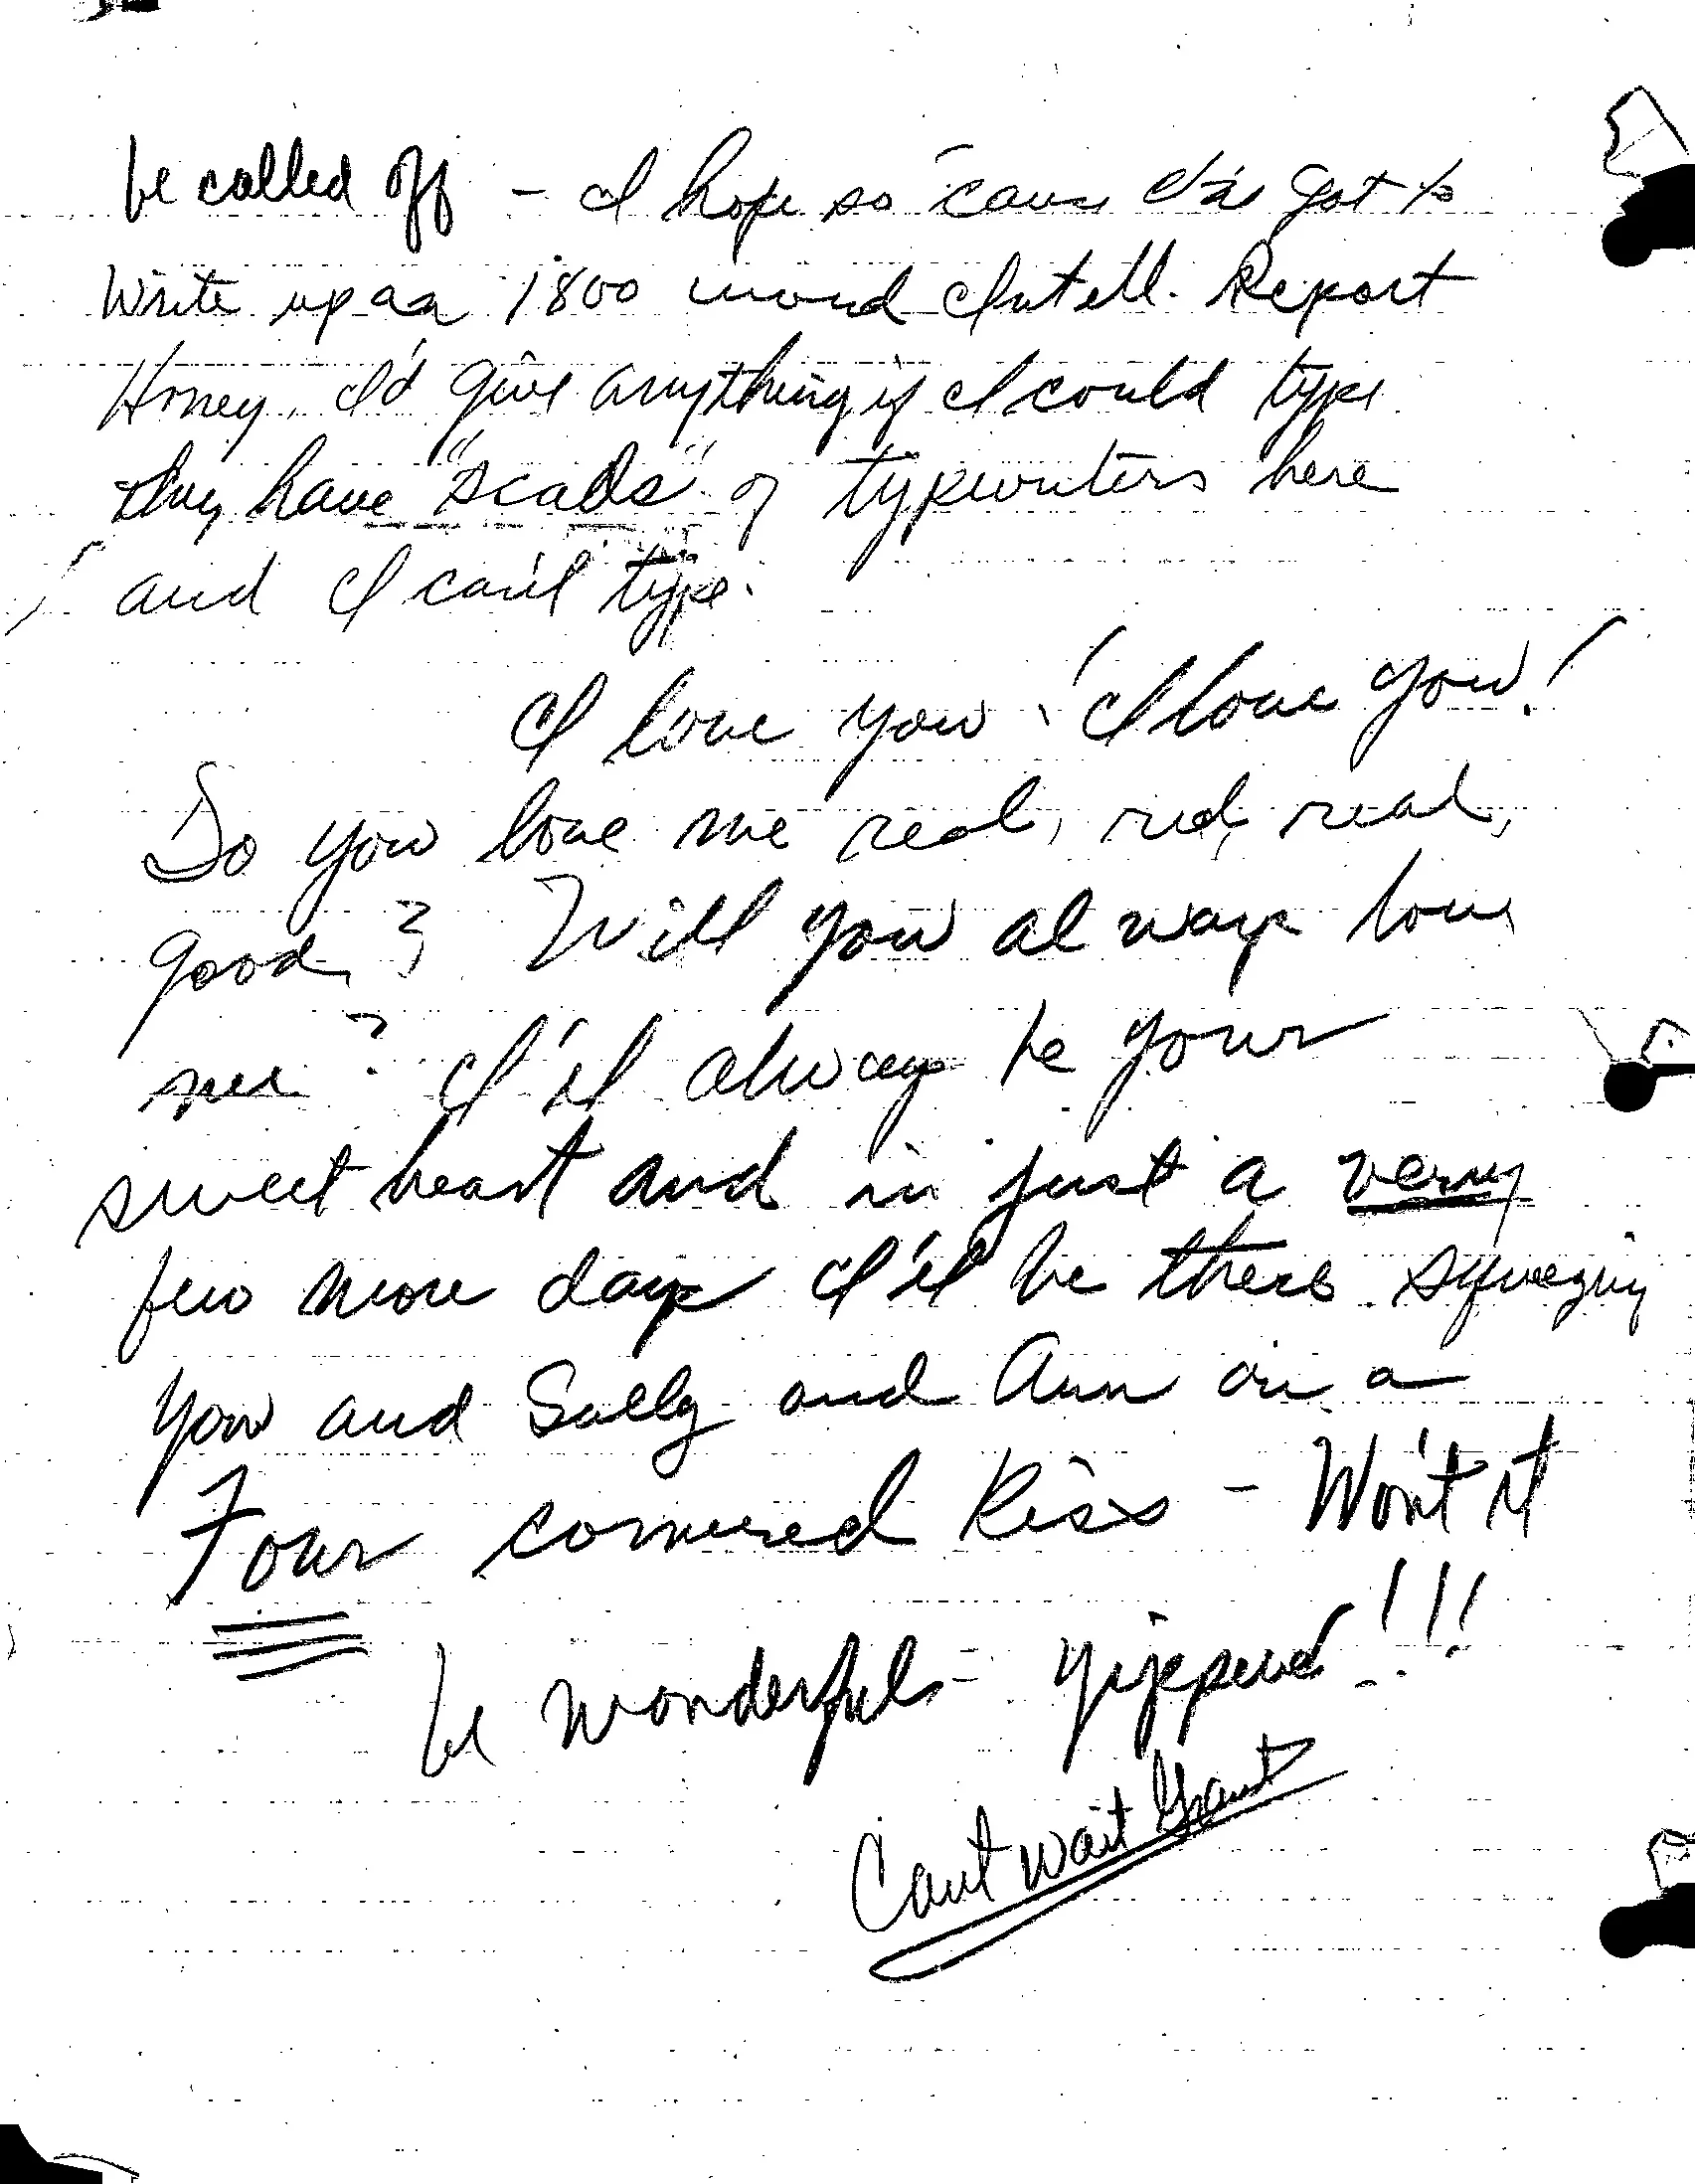 be called off - I hope so 'cause I've got to
Write up an 1800 word Intell. Report
Honey, I'd give anything if I could type
they have "scads" of typewriters here
and I can't type.
I love you ! I love you!
Do you love me real, real, real,
good ? Will you always love
me ? I'll always be your
sweetheart and in just a very
few more days I'll be there squeezing
you and Sally and Ann in a
Four cornered Kiss - Won't it
be wonderful - yippeee!!!
Can't wait Grant